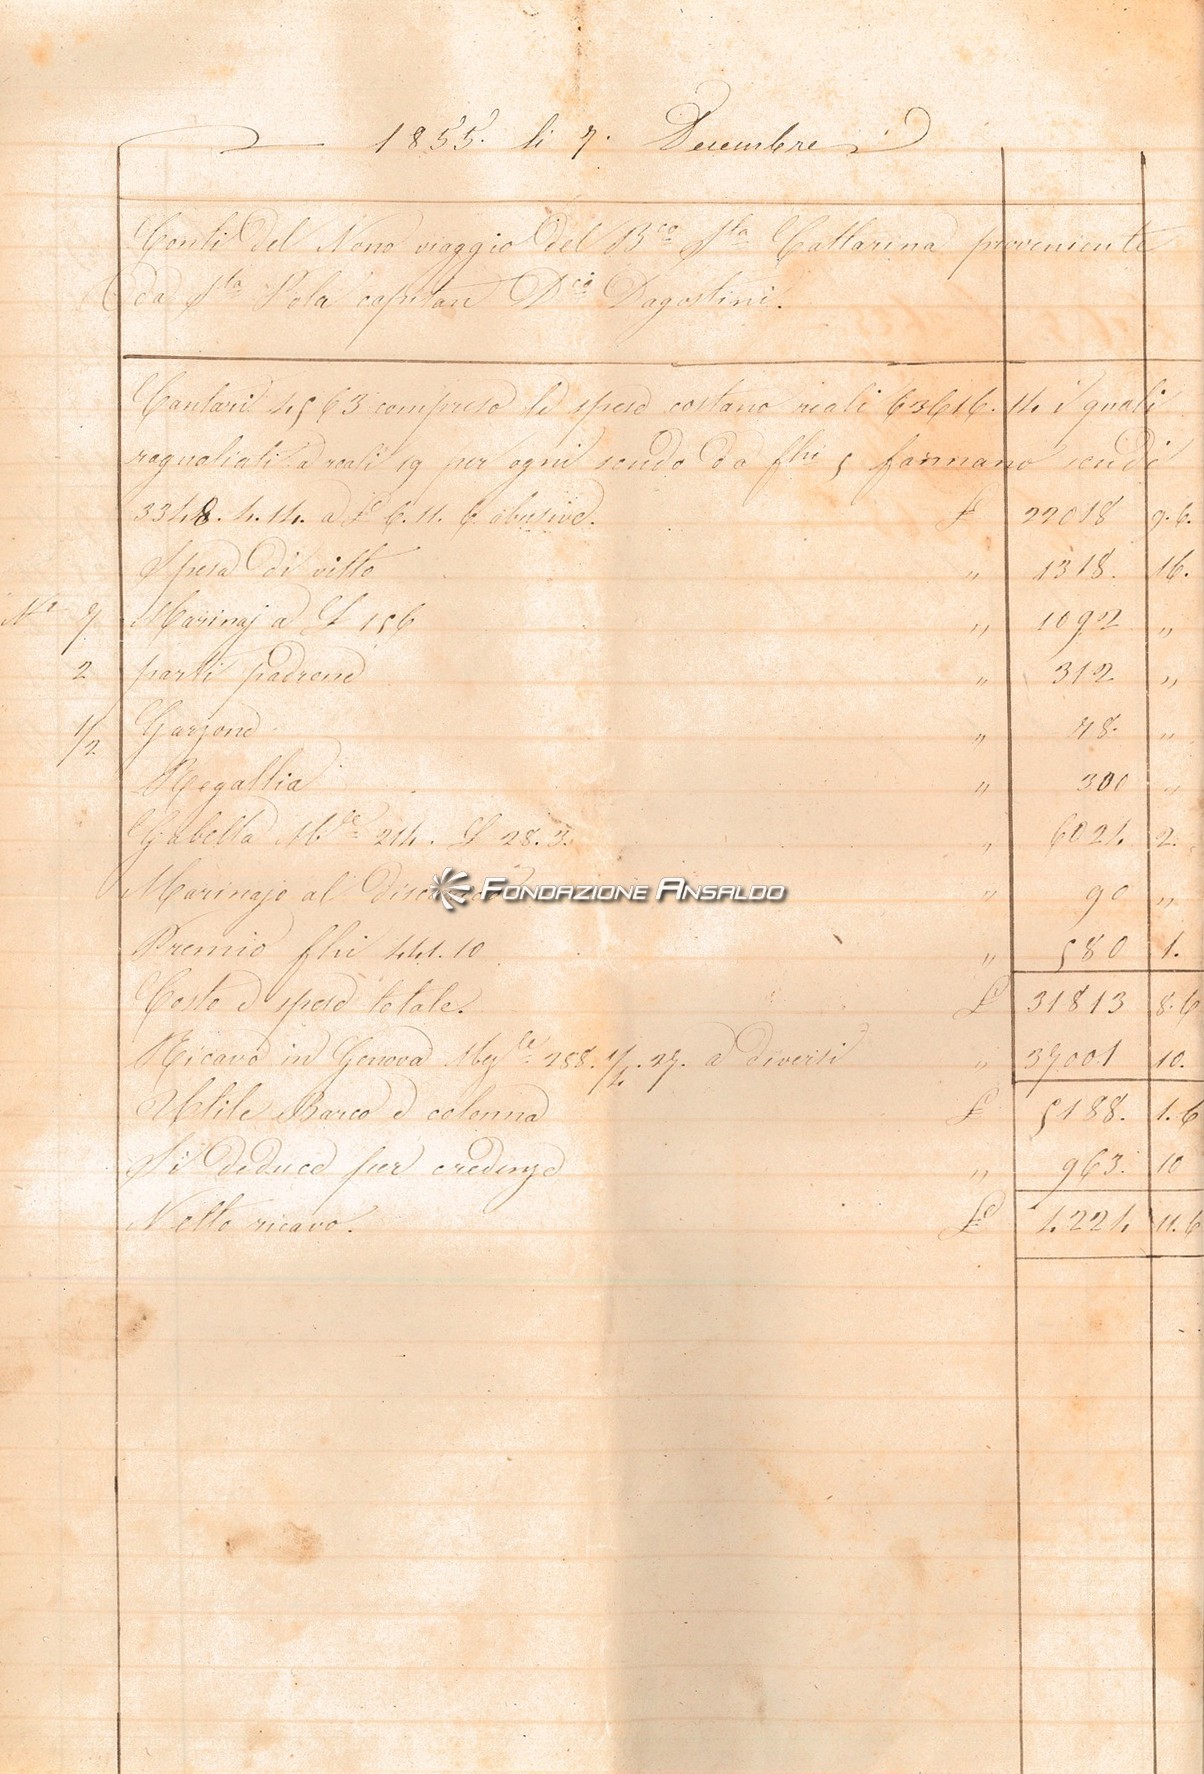 1855. li 7. Decembre
Conti Del Nono viaggio Del B.co S.ta Cattarina proveniente
da S.ta Pola capitan D.co Dagostini.
Cantari 4563 compreso le spese costano reali 63616. 14 i quali
ragualiati a reali 19 per ogni scudo da fbi 5 fannano scudi
3348. 4. 14. a £ 6. 11. 6 abusive. £ 22018 9. 6.
Spesa Di vitto " 1318. 16.
N.o 7 Marinaj a £ 156 " 1092 "
2 parti padrone " 312 "
1/2 Garzone " 78. "
Regallia " 300 "
Gabella 214. £ 28. 3. " 6024 2.
Marinaje al " 90 "
Premio fbi 441. 10 " 580 1.
Costo e spese totale. £ 31813 8. 6
Ricavo in Genova 288. 1/4. 27. a diversi " 37001 10.
Utile Barco e colonna £ 5188. 1. 6
Si deduce per credenze " 963. 10
Netto ricavo. £ 4224 11. 6
Fondazione Ansaldo